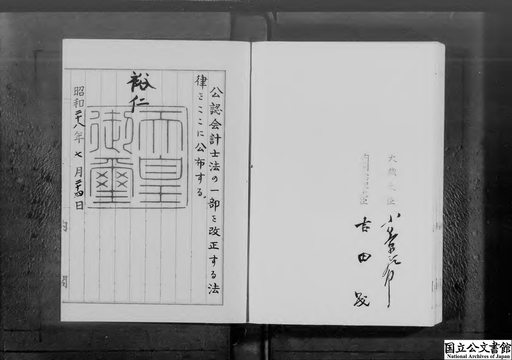 公認会計士法の一部を改正する法
律をここに公布する。
裕仁
天皇
御璽
昭和二十八年七月二十四日
内閣
大蔵大臣
吉田茂
国立公文書館
National Archives of Japan